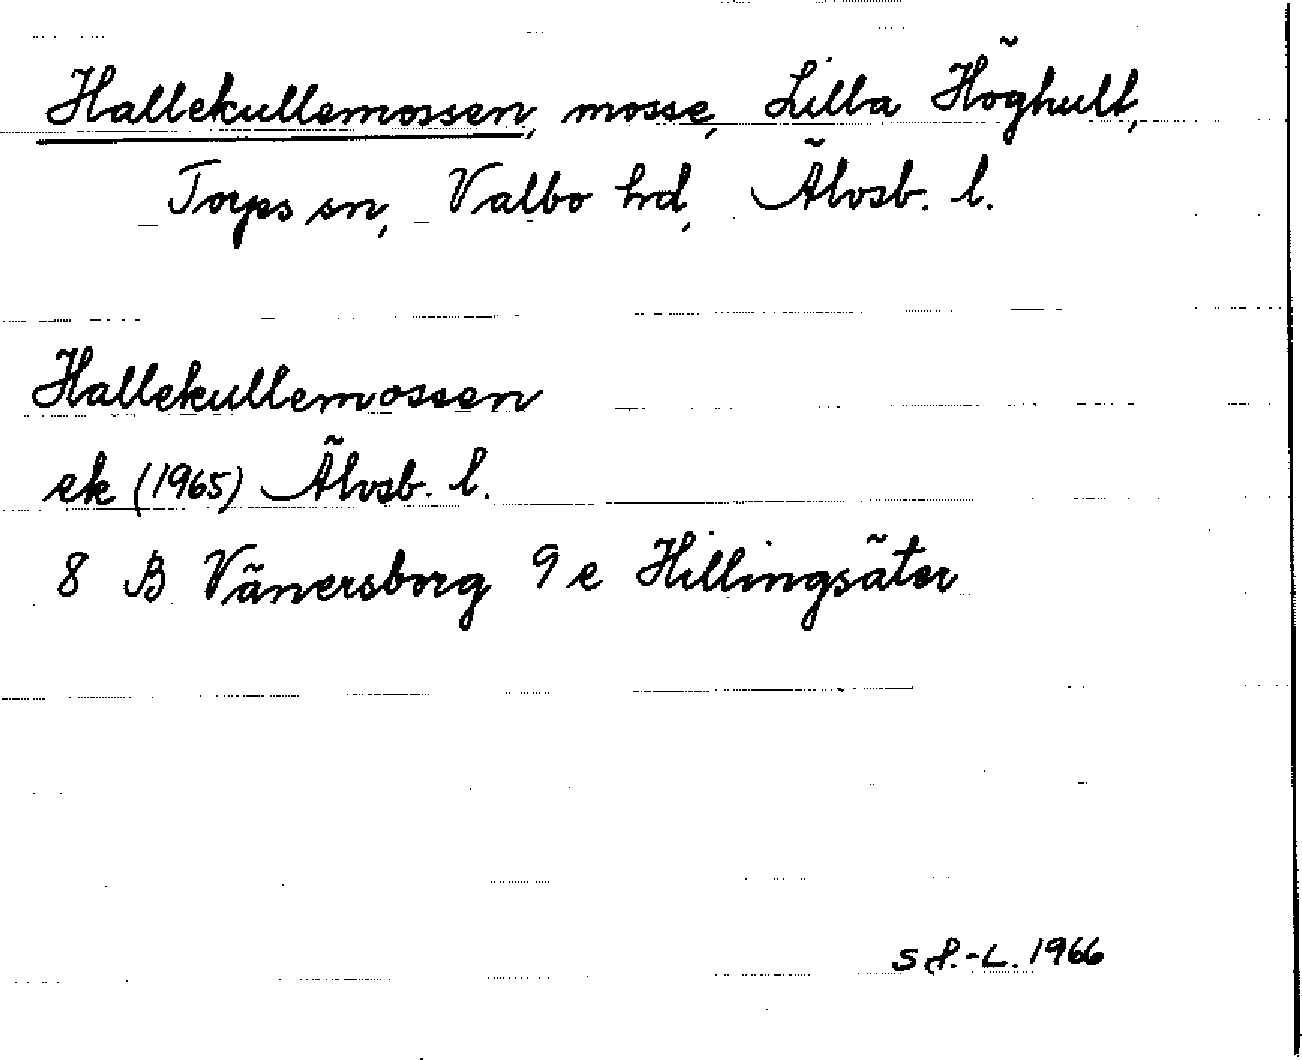 Hallekullemossen, mosse, Lilla Höghult,
Torps sn, Valbo hd, Älvsb. l.
Hallekullemossen
ek (1965) Älvsb. l.
8 B Vänersborg 9 e Hillingsäter
1966